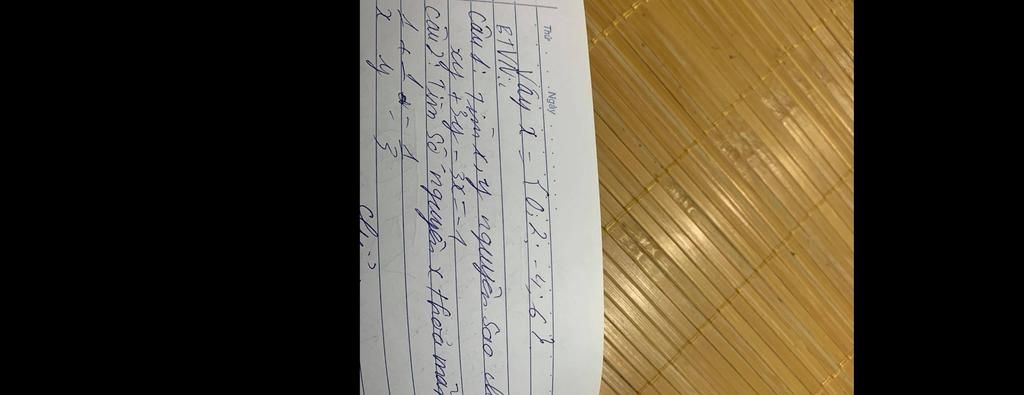 Thứ Ngày
Vậy x = {0; 2; -4; 6}
BTVN:
Câu 1: Tìm x, y nguyên sao ch
xy + 3y - 3x = -1
Câu 2: Tìm số nguyên x thoả mãn
1/x + 1/y = 1/3